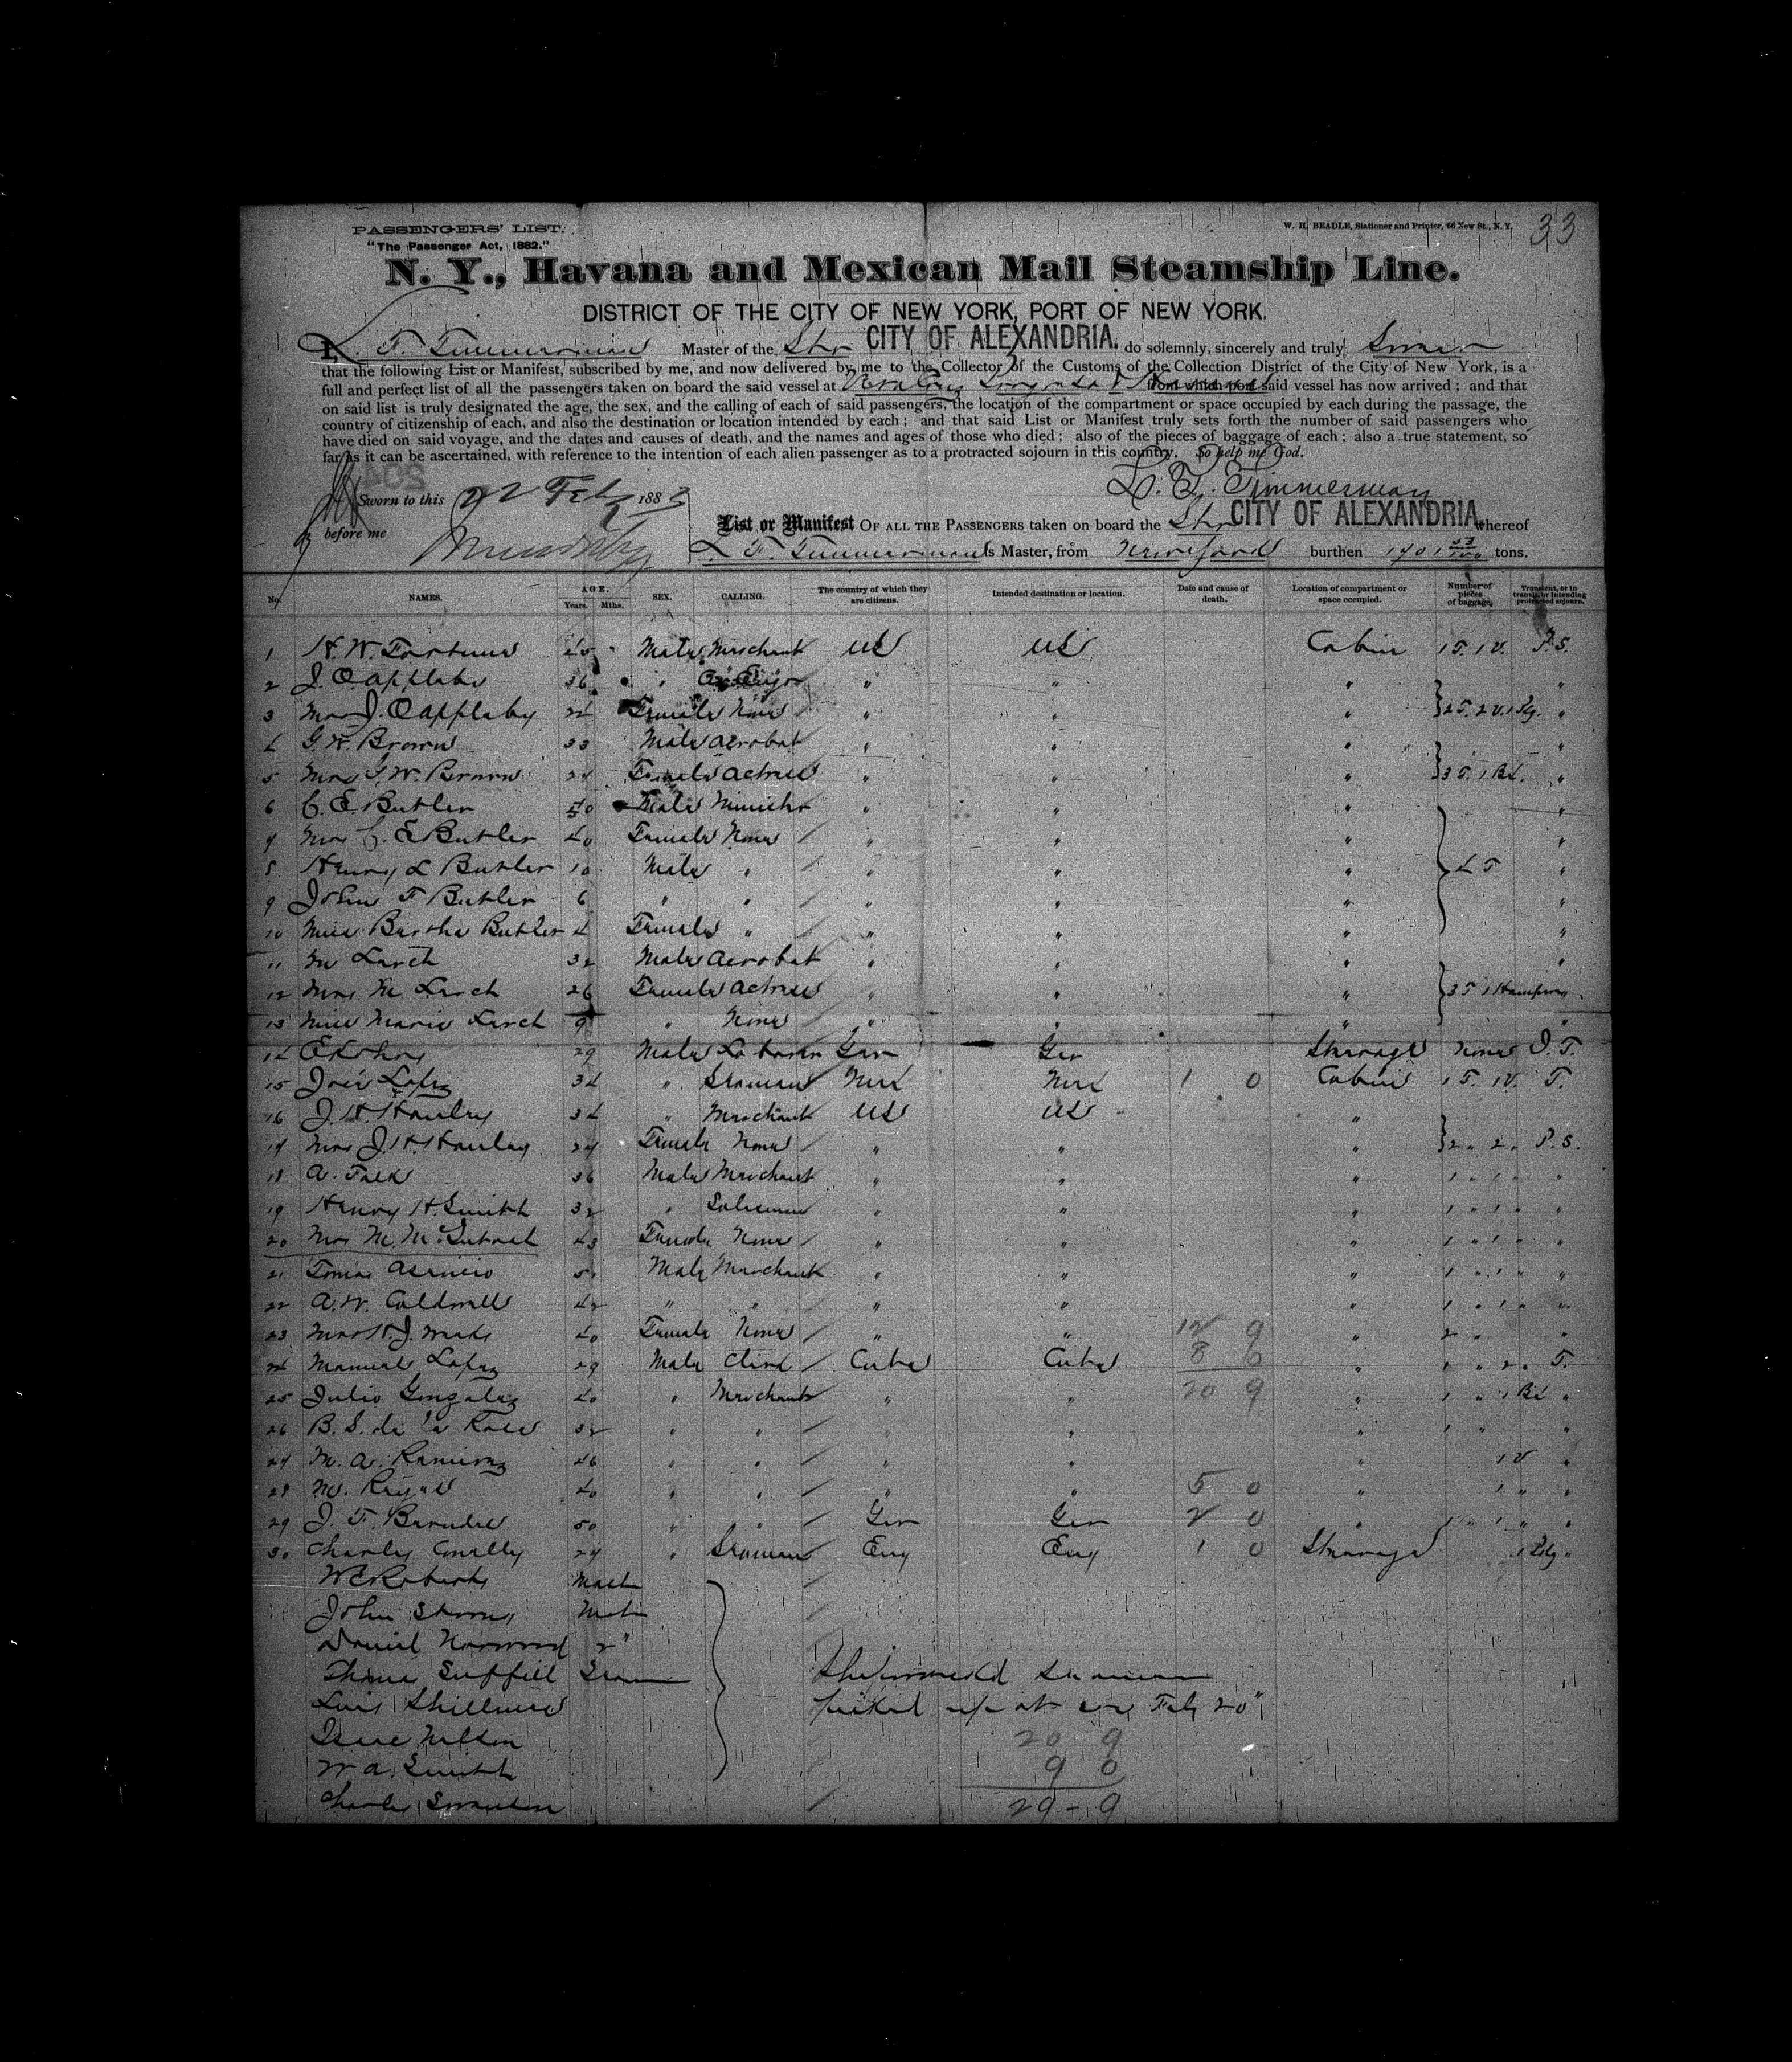 PASSENGERS' LIST.
W. H. BEADLE, Stationer and Printer, 66 New St., N. Y.
33
"The Passenger Act, 1882."
N. Y., Havana and Mexican Mail Steamship Line.
DISTRICT OF THE CITY OF NEW YORK, PORT OF NEW YORK.
I, L. F. Timmerman Master of the Str CITY OF ALEXANDRIA. do solemnly, sincerely and truly Swear
that the following List or Manifest, subscribed by me, and now delivered by me to the Collector of the Customs of the Collection District of the City of New York, is a
full and perfect list of all the passengers taken on board the said vessel at from which port said vessel has now arrived; and that
on said list is truly designated the age, the sex, and the calling of each of said passengers, the location of the compartment or space occupied by each during the passage, the
country of citizenship of each, and also the destination or location intended by each; and that said List or Manifest truly sets forth the number of said passengers who
have died on said voyage, and the dates and causes of death, and the names and ages of those who died; also of the pieces of baggage of each; also a true statement, so
far as it can be ascertained, with reference to the intention of each alien passenger as to a protracted sojourn in this country. So help me God.
L. F. Timmerman
Sworn to this 22 Feby 1883
before me
List or Manifest OF ALL THE PASSENGERS taken on board the Str CITY OF ALEXANDRIA whereof
L. F. Timmerman is Master, from burthen tons.
No. NAMES. AGE. Years. Mths. SEX. CALLING. The country of which they are citizens. Intended destination or location. Date and cause of death. Location of compartment or space occupied. Number of pieces of baggage. Transient, or in transit, or intending protracted sojourn.
1 H. W. Male Merchant US US Cabin 1 T. 1 V. P.S.
2 J. C. Appleby 36 " " " " "
3 Mrs J. C. Appleby 24 Female None " " " 2 T. 2 V. "
4 G. W. Brown 33 Male Acrobat " " " "
5 Mrs G. W. Brown 27 Female Actress " " " 3 T. 1 Bd. "
6 C. E. Butler 50 Male Minister " " " "
7 Mrs C. E. Butler 40 Female None " " " "
8 Henry L Butler 10 Male " " " " 4 T "
9 John F Butler 6 " " " " " "
10 Miss Bertha Butler 4 Female " " " " "
11 M Lerch 32 Male Acrobat " " " "
12 Mrs M Lerch 26 Female Actress " " " 3 T 1 Hamper
13 Miss Marie Lerch 9 " None " " " "
14 29 Male Laborer Ger Ger Steerage None I. T.
15 José Lopez 34 " Seaman Mex Mex 1 0 Cabin 1 T. 1 V. T.
16 J. H. Hanley 34 " Merchant US US "
17 Mrs J. H. Hanley 27 Female None " " " 2 " 2 " P. S.
18 A. Falk 36 Male Merchant " " " 1 " 1 " "
19 Henry H. Smith 32 " Salesman " " " 1 " 1 " "
20 Mrs M. 43 Female None " " " 1 " 1 " "
21 Tomas Male Merchant " " " 1 " 1 " "
22 A. W. Caldwell 42 " " " " " 1 " 1 " "
23 Mrs H. J. 40 Female None " " 12 9 " 2 " "
24 Manuel Lopez 29 Male Clerk Cuba Cuba 8 0 " T.
25 Julio Gonzalez 40 " Merchant " " 20 9 " 1 " 1 Bd "
26 B. S. de la Rosa 32 " " " " " "
27 M. A. Ramirez 46 " " " " " 1 V "
28 M. 40 " " " " 5 0 " 1 " "
29 J. F. 50 " " Ger Ger 2 0 " 1 " "
30 Charley Conelly 27 " Seaman Eng Eng 1 0 Steerage "
W E Roberts Master
John Mate
Daniel Norwood 2"
Seaman Shipwrecked Seamen
picked up at sea Feby 20"
20 9
W A. Smith 9 0
Charles 29 - 9